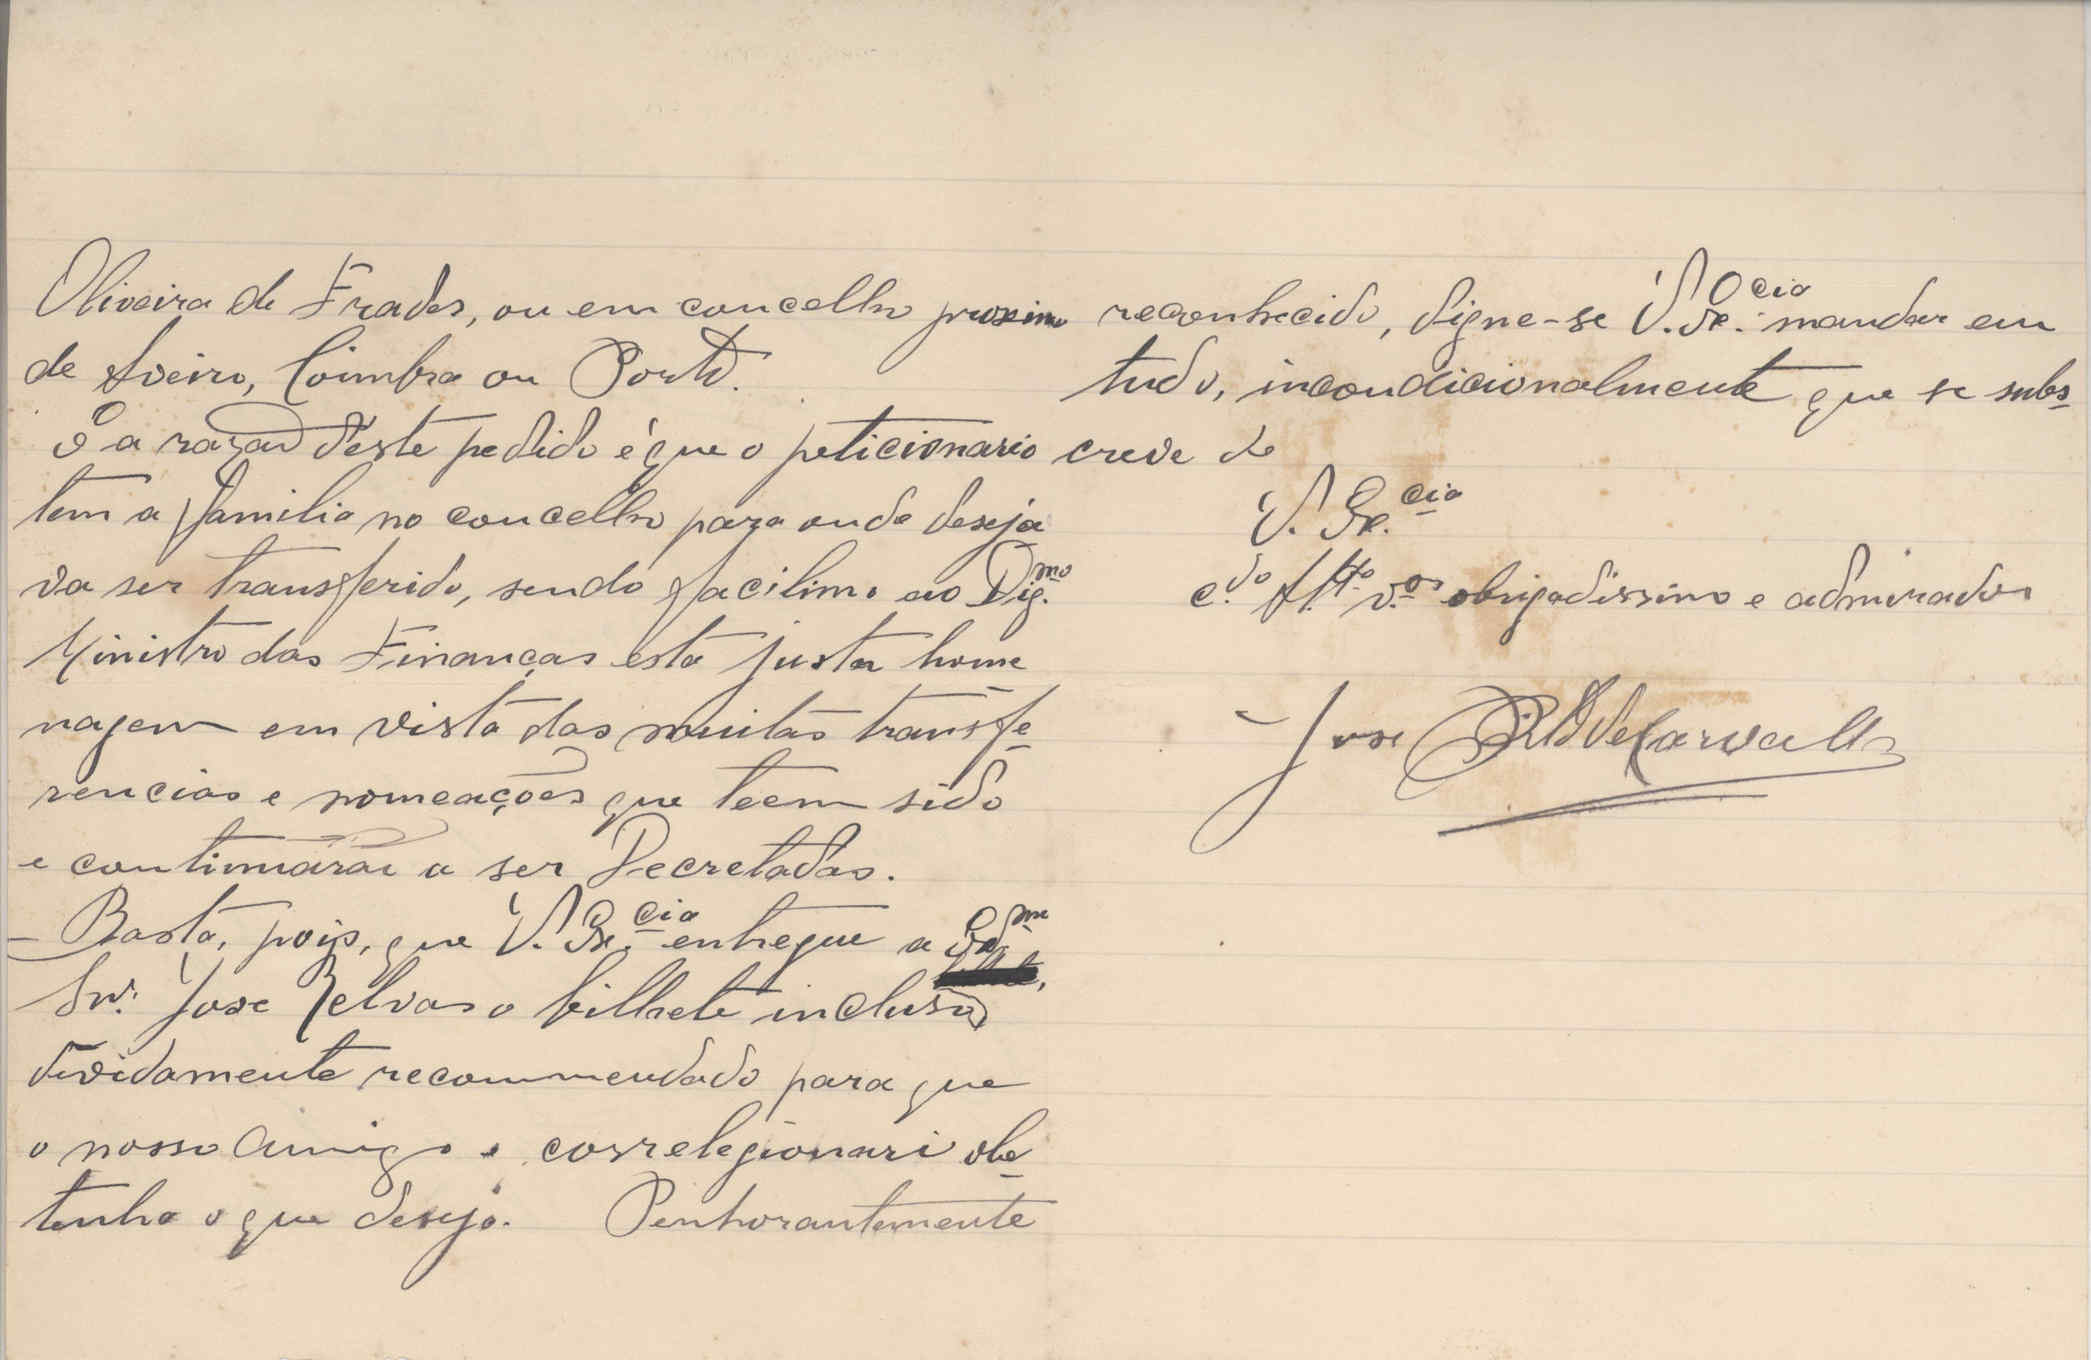 Oliveira de Frades, ou em concelho proximo
de Aveiro, Coimbra ou Porto.
E a razão d'este pedido é que o peticionario
tem a familia no concelho para onde deseja-
va ser transferido, sendo facilimo ao Dig.mo
Ministro das Finanças esta justa home-
nagem em vista das muitas transfe-
rencias e nomeações que teem sido
e continuarão a ser Decretadas.
- Basta, pois, que V. Ex.cia entregue a Ex.mo
Snr. José Relvas o bilhete incluso,
devidamente recommendado para que
o nosso amigo e correlegionari ob-
tenha o que deseja. Penhorantemente
reconhecido, digne-se V. Ex.cia mandar em
tudo, incondicionalmente que se subs-
creve de
V. Ex.cia
c.do Att.o v.or obrigadissimo e admirador
José de Carvalho